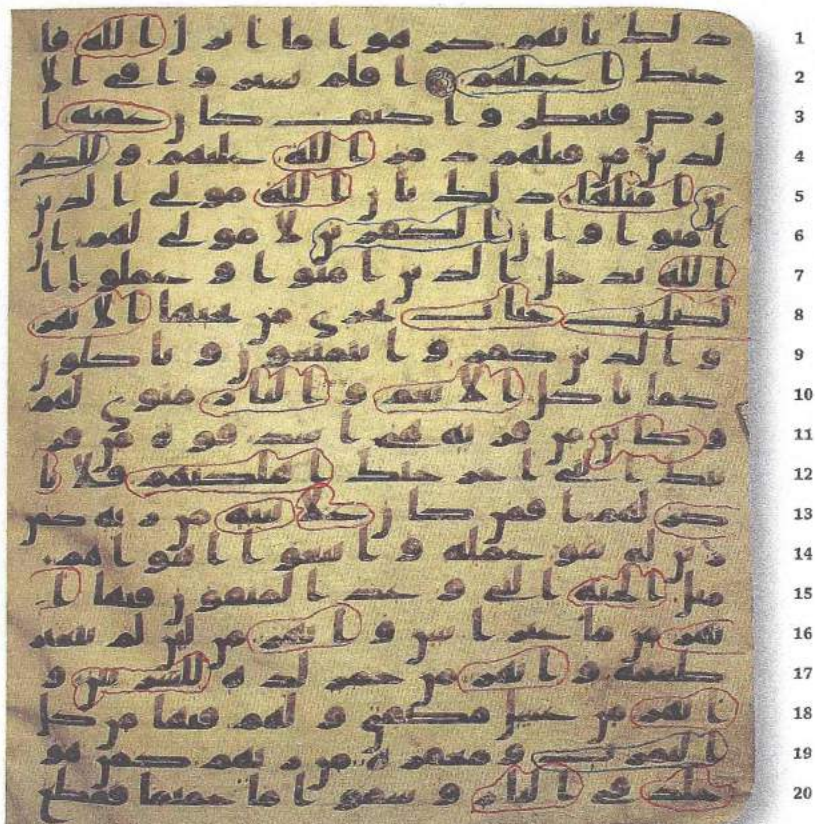 1 ذلك بانهم كرهوا ما انزل الله فا
2 حبط اعملهم افلم يسيروا في الا
3 رض فينظروا كيف كان عقبه ا
4 لذين من قبلهم دمر الله عليهم وللكفر
5 ين امثلها ذلك بان الله مولي الذين
6 امنوا وان الكفرين لا مولي لهم ان
7 الله يدخل الذين امنوا وعملوا ا
8 لصلحت جنات تجري من تحتها الانهر
9 والذين كفروا يتمتعون وياكلون
10 كما تاكل الانعم والنار مثوي لهم
11 وكاين من قريه هي اشد قوه من قر
12 يتك التي اخرجتك اهلكنهم فلا نا
13 صر لهم افمن كان علا بينه من ربه كمن
14 زين له سو عمله واتبعوا اهواهم
15 مثل الجنه التي وعد المتقون فيها ا
16 نهر من ما غير اسن وانهر من لبن لم يتغير
17 طعمه وانهر من خمر لذه للشربين و
18 انهر من عسل مصفي ولهم فيها من كل
19 الثمرت ومغفره من ربهم كمن هو
20 خلد في النار وسقوا ما حميما فقطع